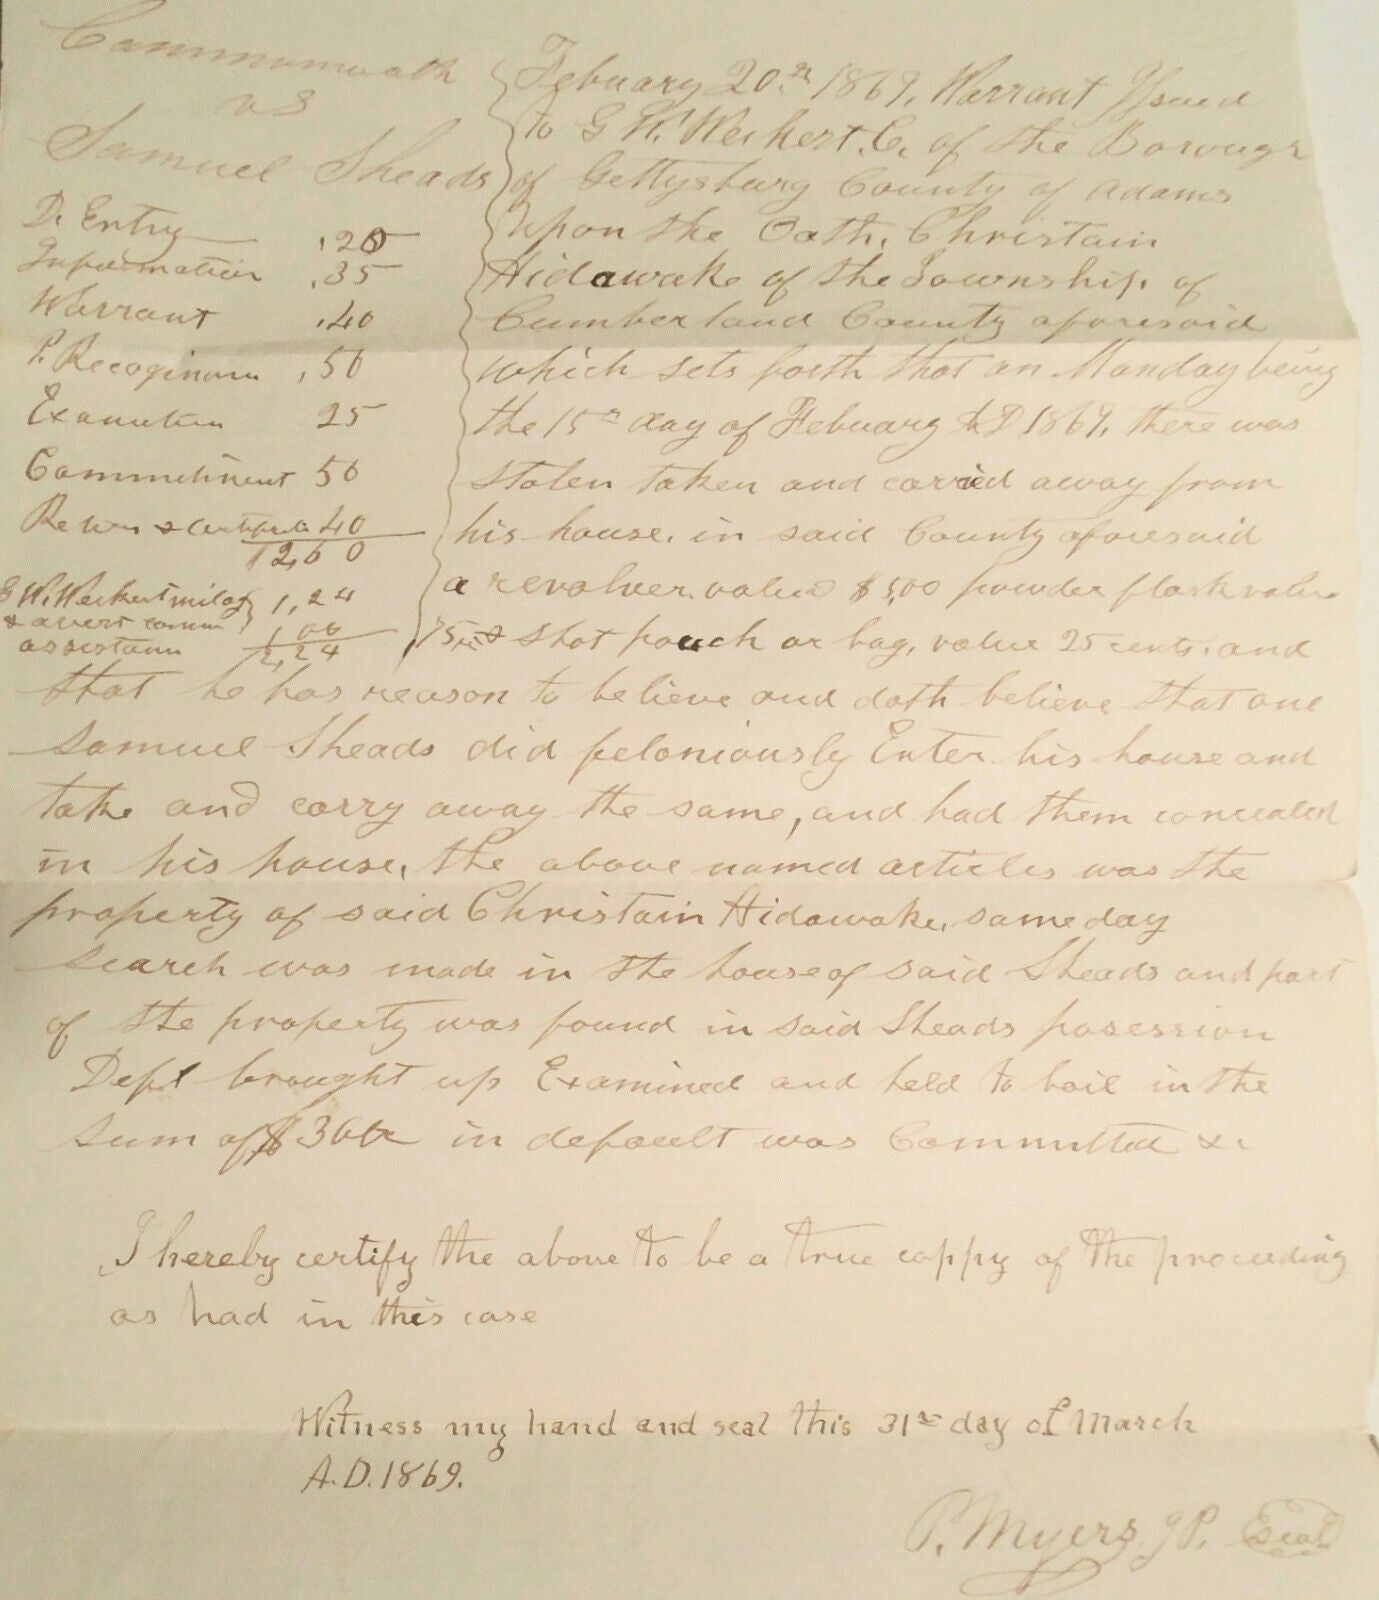 Commonwealth
vs
Samuel Sheads
D. Entry .20
Information .35
Warrant .40
P. Recoginam .50
Examination 25
Commitment 50
Return & Certificate 40
$2,60
G W. Weikert milag 1,24
& avert comm
assistann 1,00
2,24
Febuary 20th 1869, Warrant Issued
to G W. Weikert. C. of the Borough
of Gettysburg County of Adams
upon the Oath. Christain
Hidawake of the Township. of
Cumberland County aforesaid
which sets forth that on Monday being
the 15th day of Febuary AD 1869, there was
stolen taken and carried away from
his house. in said County aforesaid
a revolver. value $5,00 powder flask value
75 cts & shot pouch or bag, value 25 cents. and
that he has reason to believe and doth believe that one
Samuel Sheads did feloniously Enter his house and
take and carry away the same, and had them concealed
in his house. the above named articles was the
property of said Christain Hidawake. same day
search was made in the house of said Sheads and part
of the property was found in said Sheads posession
Deft brought up Examined and held to bail in the
sum of $300 in default was Committed &c
I hereby certify the above to be a true coppy of the proceeding
as had in this case
Witness my hand and seal this 31st day of March
A.D. 1869.
P. Myers JP. Seal